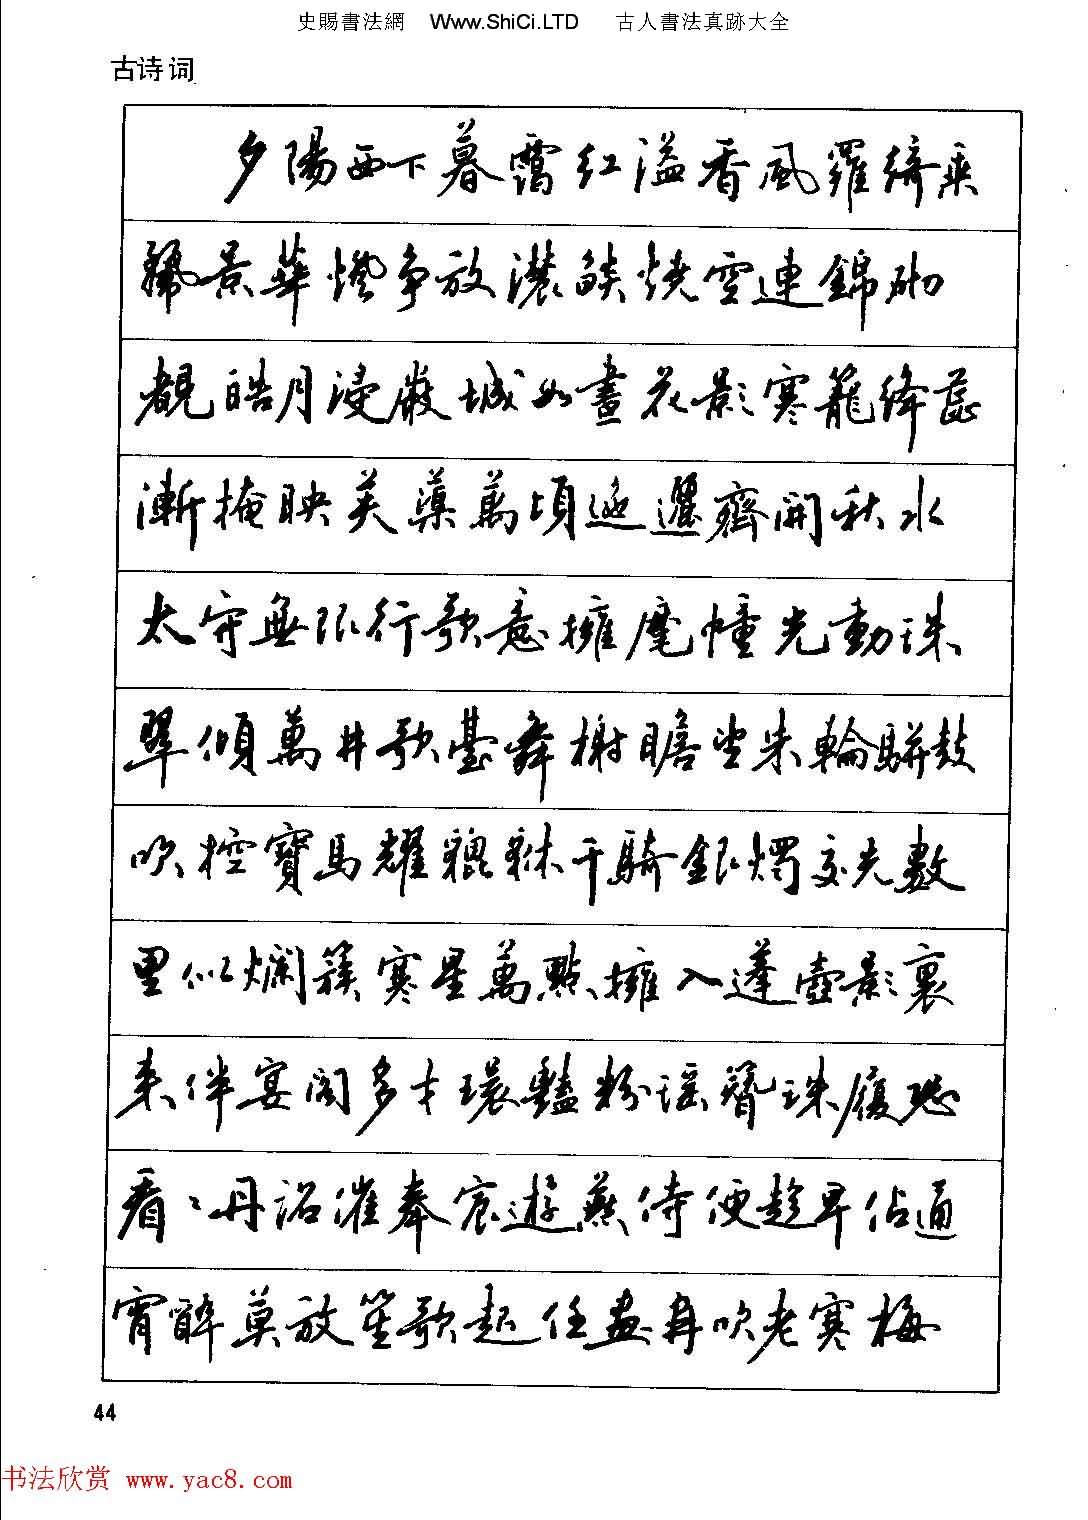 史賜書法網 Www.ShiCi.LTD 古人書法真跡大全
古诗词
夕陽西下暮靄紅溢香風羅綺乘
麗景華燈争放濃燄燒空連錦砌
覩皓月浸嚴城如畫花影寒籠絳蕊
漸掩映芙蕖萬頃迤邐齊開秋水
太守無限行歌意擁麾幢光動珠
翠傾萬井歌臺舞榭瞻望朱輪駢鼓
吹控寶馬耀貔貅千騎銀燭交光數
里似爛簇寒星萬點擁入蓬壺影裏
来伴宴閣多才環豔粉瑶簪珠履恐
看看丹詔催奉宸遊燕侍便趁早佔通
宵醉莫放笙歌起任畫角吹老寒梅
44
书法欣赏 www.yac8.com